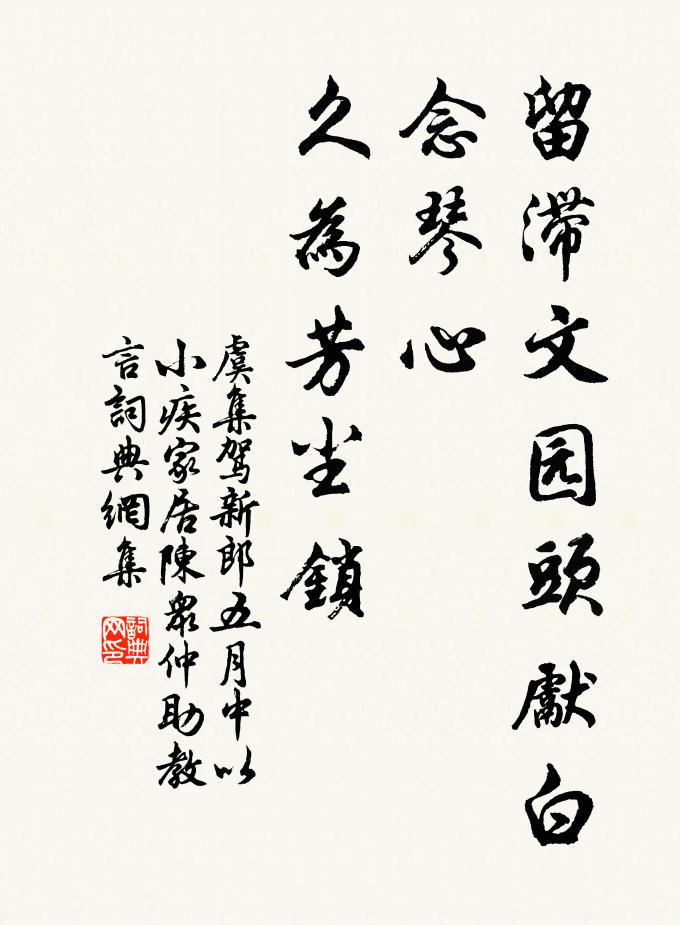 留滞文园頭獻白
念琴心
久為芳尘鎖
虞集駕新郎五月中以
小疾家居陳眾仲助教
言詞典網集
詞典
网印